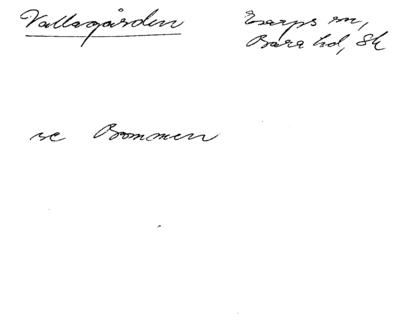 Vallagården
Esarps sn,
Bara hd, Sk
se Bommen